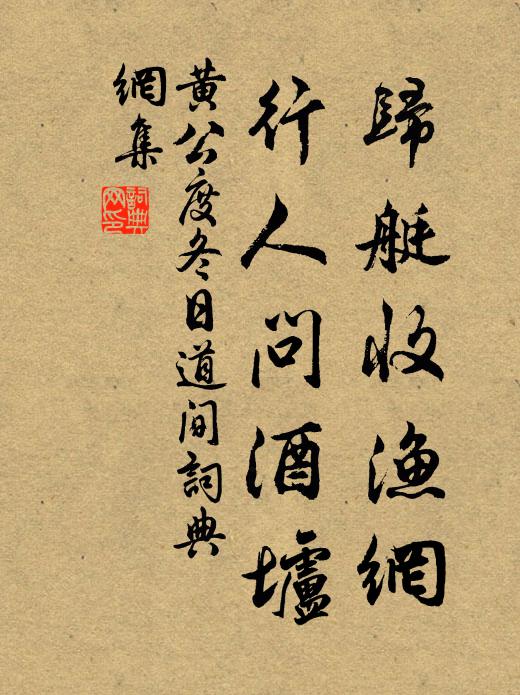 歸艇收漁網
行人問酒壚
黃公度冬日道間詞典
網集
詞典
网印